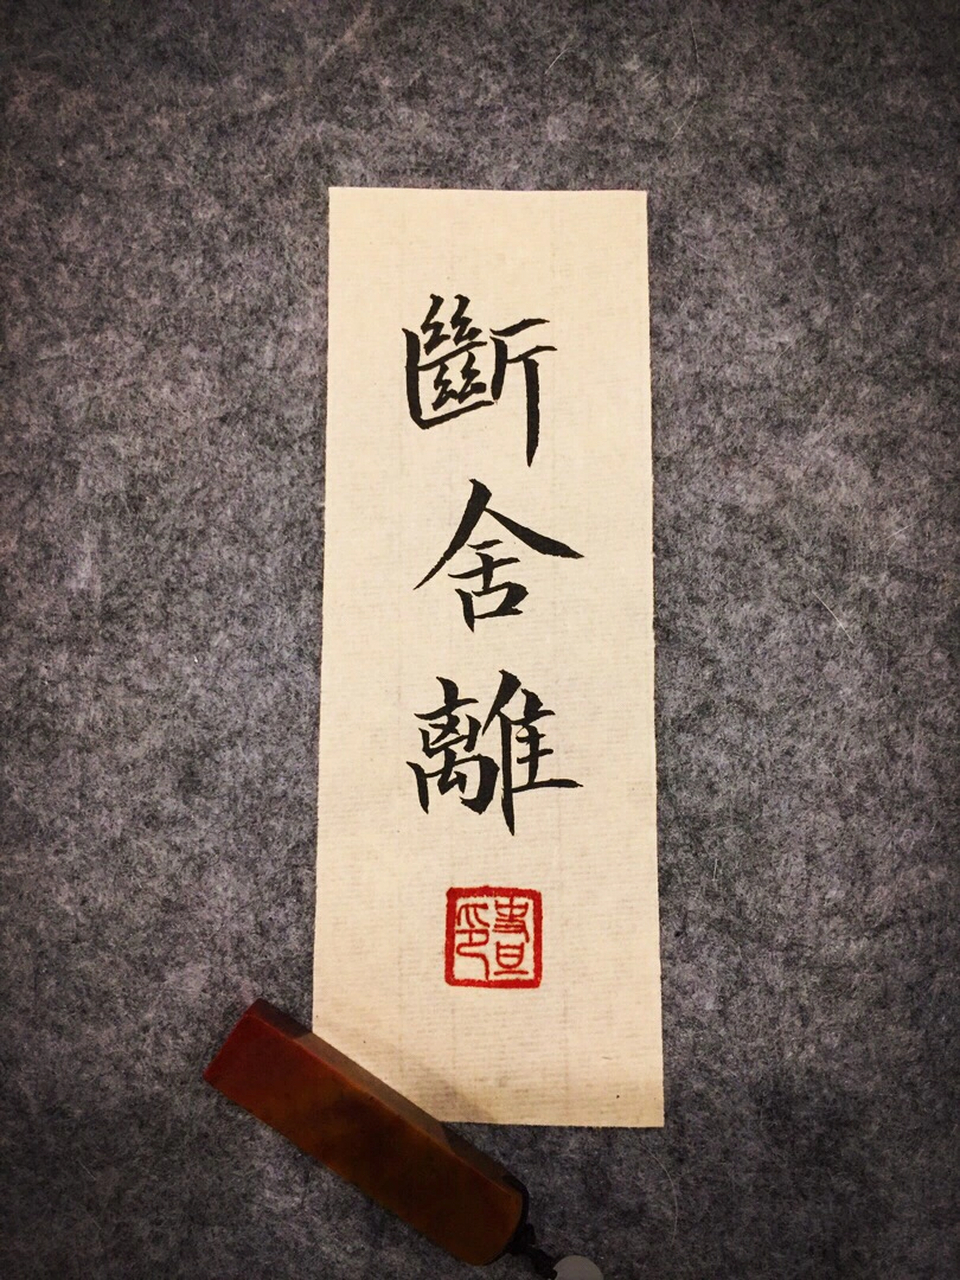 斷舍離